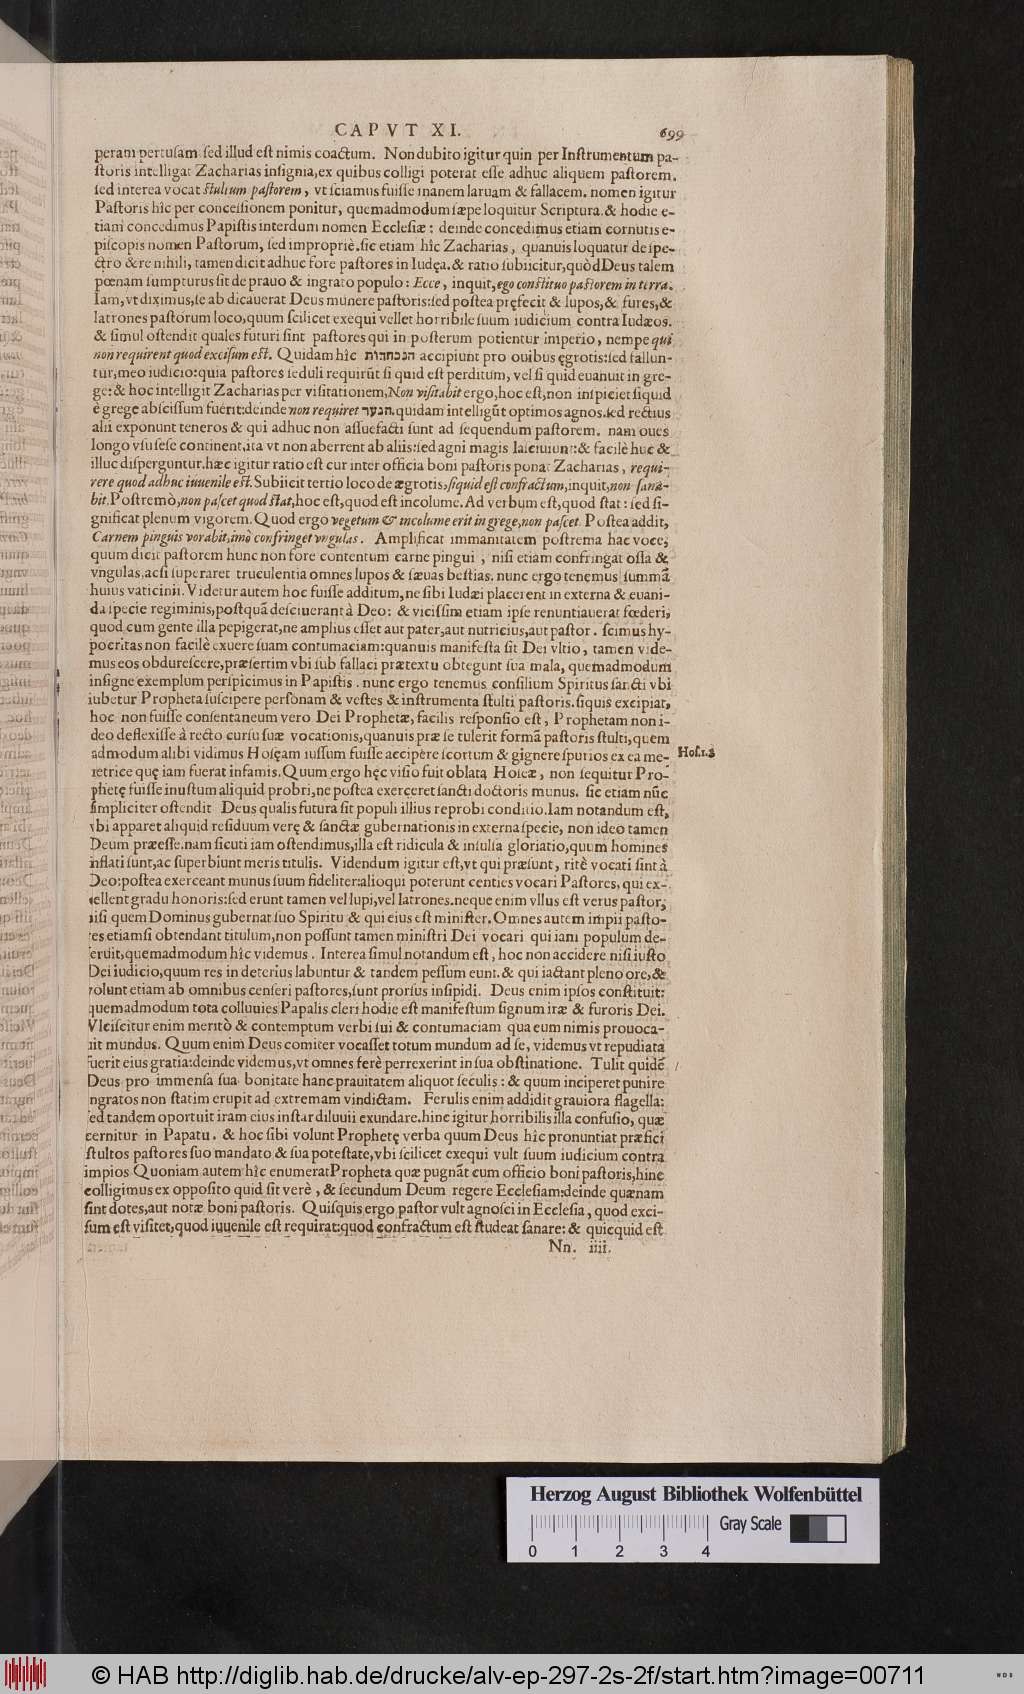 CAPVT XI. 699
peram pertusam: sed illud est nimis coactum. Non dubito igitur quin per Instrumentum pa-
storis intelligat Zacharias insignia, ex quibus colligi poterat esse adhuc aliquem pastorem.
sed interea vocat stultum pastorem, vt sciamus fuisse inanem laruam & fallacem. nomen igitur
Pastoris hîc per concessionem ponitur, quemadmodum sæpe loquitur Scriptura. & hodie e-
tiam concedimus Papistis interdum nomen Ecclesiæ: deinde concedimus etiam cornutis e-
piscopis nomen Pastorum, sed impropriè. sic etiam hîc Zacharias, quanuis loquatur de spe-
ctro & re nihili, tamen dicit adhuc fore pastores in Iudęa. & ratio subiicitur, quòd Deus talem
pœnam sumpturus sit de prauo & ingrato populo: Ecce, inquit, ego constituo pastorem in terra.
Iam, vt diximus, se abdicauerat Deus munere pastoris: sed postea pręfecit & lupos, & fures, &
latrones pastorum loco, quum scilicet exequi vellet horribile suum iudicium contra Iudæos.
& simul ostendit quales futuri sint pastores qui in posterum potientur imperio, nempe qui
non requirent quod excisum est. Quidam hîc הנכחדות accipiunt pro ouibus ęgrotis: sed fallun-
tur, meo iudicio: quia pastores seduli requirūt si quid est perditum, vel si quid euanuit in gre-
ge: & hoc intelligit Zacharias per visitationem, Non visitabit ergo, hoc est, non inspiciet siquid
è grege abscissum fuerit: deinde non requiret הנער, quidam intelligūt optimos agnos. sed rectius
alii exponunt teneros & qui adhuc non assuefacti sunt ad sequendum pastorem. nam oues
longo vsu sese continent, ita vt non aberrent ab aliis: sed agni magis lasciuiunt: & facilè huc &
illuc disperguntur. hæc igitur ratio est cur inter officia boni pastoris ponat Zacharias, requi-
rere quod adhuc iuuenile est. Subiicit tertio loco de ægrotis, siquid est confractum, inquit, non sana-
bit. Postremò, non pascet quod stat, hoc est, quod est incolume. Ad verbum est, quod stat: sed si-
gnificat plenum vigorem. Quod ergo vegetum & incolume erit in grege, non pascet. Postea addit,
Carnem pinguis vorabit, imò confringet vngulas. Amplificat immanitatem postrema hac voce,
quum dicit pastorem hunc non fore contentum carne pingui, nisi etiam confringat ossa &
vngulas, acsi superaret truculentia omnes lupos & sæuas bestias. nunc ergo tenemus summā
huius vaticinii. Videtur autem hoc fuisse additum, ne sibi Iudæi placerent in externa & euani-
da specie regiminis, postquā desciuerant à Deo: & vicissim etiam ipse renuntiauerat fœderi,
quod cum gente illa pepigerat, ne amplius esset aut pater, aut nutricius, aut pastor. scimus hy-
pocritas non facilè exuere suam contumaciam: quanuis manifesta sit Dei vltio, tamen vide-
mus eos obdurescere, præsertim vbi sub fallaci prætextu obtegunt sua mala, quemadmodum
insigne exemplum perspicimus in Papistis. nunc ergo tenemus consilium Spiritus sancti vbi
iubetur Propheta suscipere personam & vestes & instrumenta stulti pastoris. siquis excipiat,
hoc non fuisse consentaneum vero Dei Prophetæ, facilis responsio est, Prophetam non i-
deo deflexisse à recto cursu suæ vocationis, quanuis præ se tulerit formā pastoris stulti, quem
admodum alibi vidimus Hosęam iussum fuisse accipere scortum & gignere spurios ex ea me- Hos.1.3
retrice quę iam fuerat infamis. Quum ergo hęc visio fuit oblata Hoseæ, non sequitur Pro-
phetę fuisse inustum aliquid probri, ne postea exerceret sancti doctoris munus. sic etiam nūc
simpliciter ostendit Deus qualis futura sit populi illius reprobi conditio. Iam notandum est,
vbi apparet aliquid residuum verę & sanctæ gubernationis in externa specie, non ideo tamen
Deum præesse. nam sicuti iam ostendimus, illa est ridicula & insulsa gloriatio, quum homines
inflati sunt, ac superbiunt meris titulis. Videndum igitur est, vt qui præsunt, ritè vocati sint à
Deo: postea exerceant munus suum fideliter: alioqui poterunt centies vocari Pastores, qui ex-
cellent gradu honoris: sed erunt tamen vel lupi, vel latrones. neque enim vllus est verus pastor,
nisi quem Dominus gubernat suo Spiritu & qui eius est minister. Omnes autem impii pasto-
res etiamsi obtendant titulum, non possunt tamen ministri Dei vocari qui iam populum de-
seruit, quemadmodum hîc videmus. Interea simul notandum est, hoc non accidere nisi iusto
Dei iudicio, quum res in deterius labuntur & tandem pessum eunt. & qui iactant pleno ore, &
volunt etiam ab omnibus censeri pastores, sunt prorsus insipidi. Deus enim ipsos constituit:
quemadmodum tota colluuies Papalis cleri hodie est manifestum signum iræ & furoris Dei.
Vlciscitur enim meritò & contemptum verbi sui & contumaciam qua eum nimis prouoca-
uit mundus. Quum enim Deus comiter vocasset totum mundum ad se, videmus vt repudiata
fuerit eius gratia: deinde videmus, vt omnes ferè perrexerint in sua obstinatione. Tulit quidē
Deus pro immensa sua bonitate hanc prauitatem aliquot seculis: & quum inciperet punire
ingratos non statim erupit ad extremam vindictam. Ferulis enim addidit grauiora flagella:
sed tandem oportuit iram eius instar diluuii exundare. hinc igitur horribilis illa confusio, quæ
cernitur in Papatu. & hoc sibi volunt Prophetę verba quum Deus hîc pronuntiat præfici
stultos pastores suo mandato & sua potestate, vbi scilicet exequi vult suum iudicium contra
impios Quoniam autem hîc enumerat Propheta quæ pugnāt cum officio boni pastoris, hinc
colligimus ex opposito quid sit verè, & secundum Deum regere Ecclesiam: deinde quænam
sint dotes, aut notæ boni pastoris. Quisquis ergo pastor vult agnosci in Ecclesia, quod exci-
sum est visitet, quod iuuenile est requirat: quod confractum est studeat sanare: & quicquid est
Nn. iiii.
Herzog August Bibliothek Wolfenbüttel
Gray Scale
0 1 2 3 4
© HAB http://diglib.hab.de/drucke/alv-ep-297-2s-2f/start.htm?image=00711